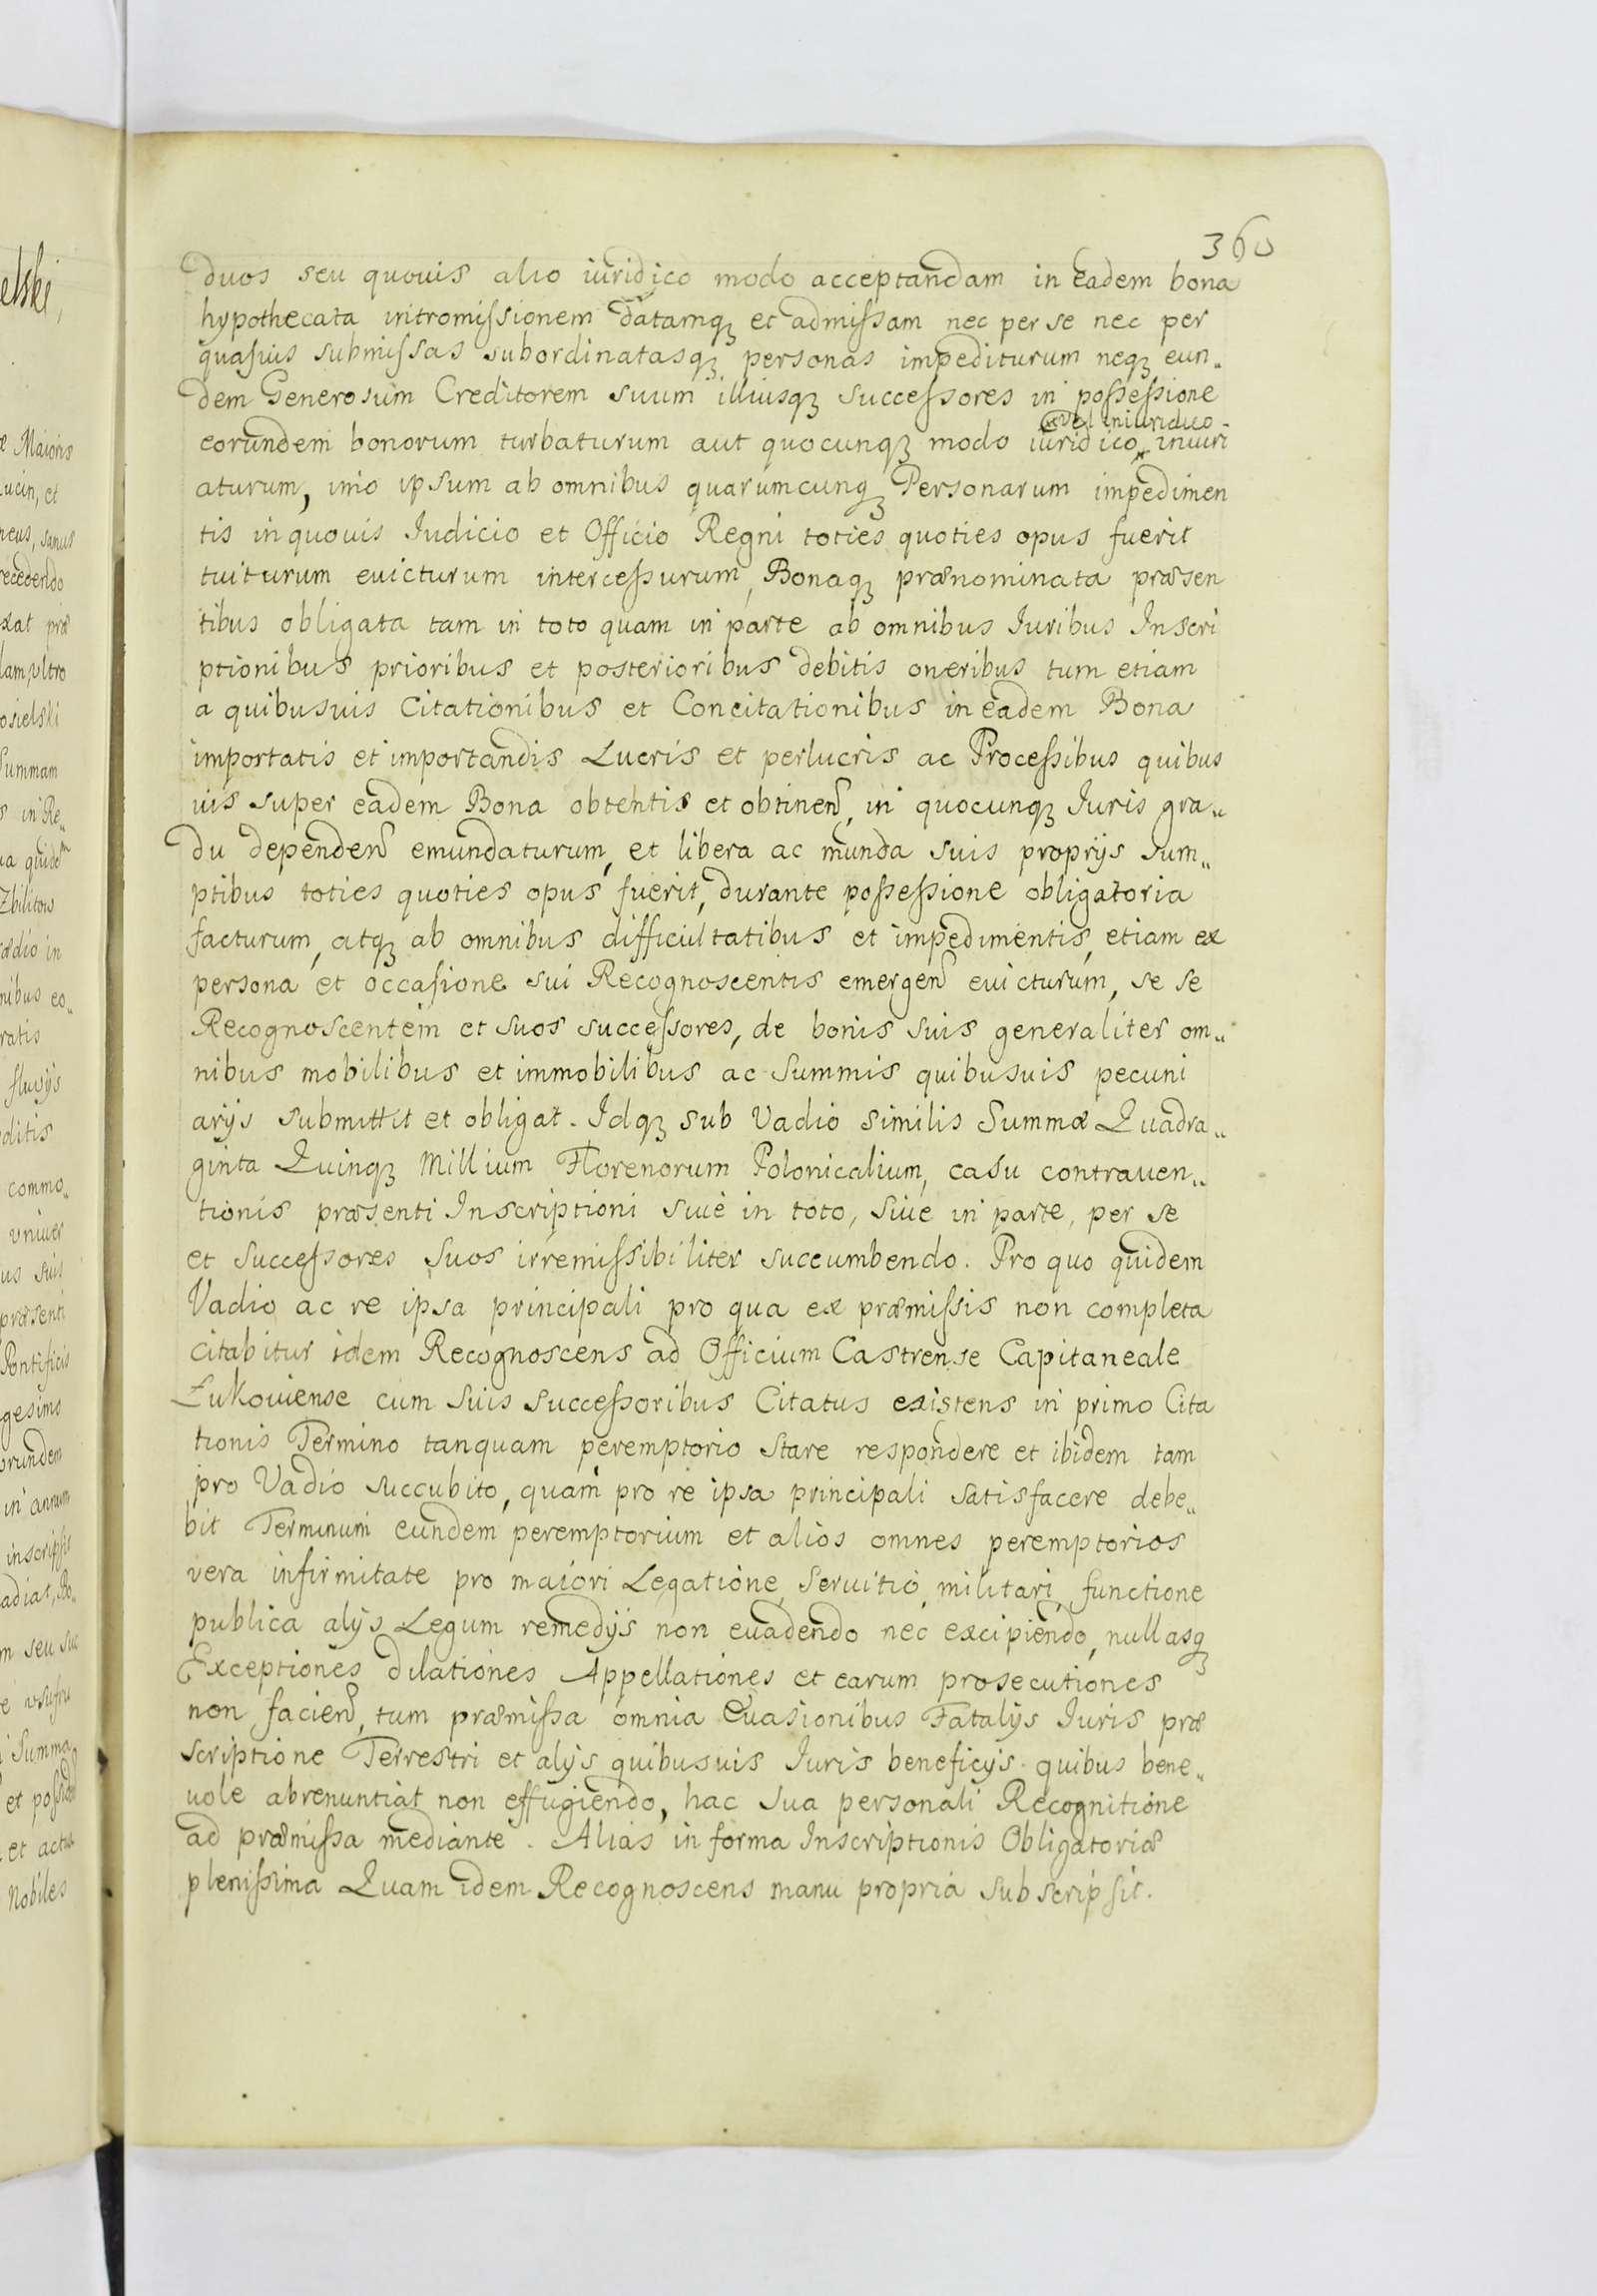 360
duos seu quouis alio iuridico modo acceptandam in eadem bona
hypothecata intromissionem datamqꝫ et admissam nec per se nec per
quasuis submissas subordinatasqꝫ personas impediturum neqꝫ eun„
dem Generosum Creditorem suum illiusqꝫ successores in possessione
vel iniuriduo
eorundem bonorum turbaturum aut quocunqꝫ modo iuridico iniuri
aturum, imo ipsum ab omnibus quarumcunqꝫ Personarum impedimen
tis in quouis Iudicio et Officio Regni toties quoties opus fuerit
tuiturum euicturum intercessurum, Bonaqꝫ prænominata præsen
tibus obligata tam in toto quam in parte ab omnibus Iuribus Inscri
ptionibus prioribus et posterioribus debitis oneribus tum etiam
a quibusuis Citationibus et Concitationibus in eadem Bona
importatis et importandis Lucris et perlucris ac Processibus quibus
uis super eadem Bona obtentis et obtinen, in quocunqꝫ Iuris gra„
du dependen emundaturum, et libera ac munda suis proprijs sum„
ptibus toties quoties opus fuerit, durante possessione obligatoria
facturum, atqꝫ ab omnibus difficultatibus et impedimentis, etiam ex
persona et occasione sui Recognoscentis emergen euicturum, se se
Recognoscentem et suos successores, de bonis suis generaliter om„
nibus mobilibus et immobilibus ac summis quibusuis pecuni
arijs submittit et obligat. Idqꝫ sub Vadio similis Summæ Quadra„
ginta Quinqꝫ Millium Florenorum Polonicalium, casu contrauen„
tionis præsenti Inscriptioni siue in toto, siue in parte, per se
et successores suos irremissibiliter succumbendo. Pro quo quidem
Vadio ac re ipsa principali pro qua ex præmissis non completa
citabitur idem Recognoscens ad Officium Castrense Capitaneale
Łukouiense cum suis successoribus Citatus existens in primo Cita
tionis Termino tanquam peremptorio stare respondere et ibidem tam
pro Vadio succubito, quam pro re ipsa principali satisfacere debe„
bit Terminum eundem peremptorium et alios omnes peremptorios
vera infirmitate pro maiori Legatione, seruitio, militari, functione
publica alijs Legum remedijs non euadendo nec excipiendo, nullasqꝫ
Exceptiones dilationes Appellationes et earum prosecutiones
non facien, tum præmissa omnia Euasionibus Fatalijs Iuris præ
scriptione Terrestri et alijs quibusuis Iuris beneficijs quibus bene„
uole abrenuntiat non effugiendo, hac sua personali Recognitione
ad præmissa mediante. Alias in forma Inscriptionis Obligatoriæ
plenissima Quam idem Recognoscens manu propria subscripsit.